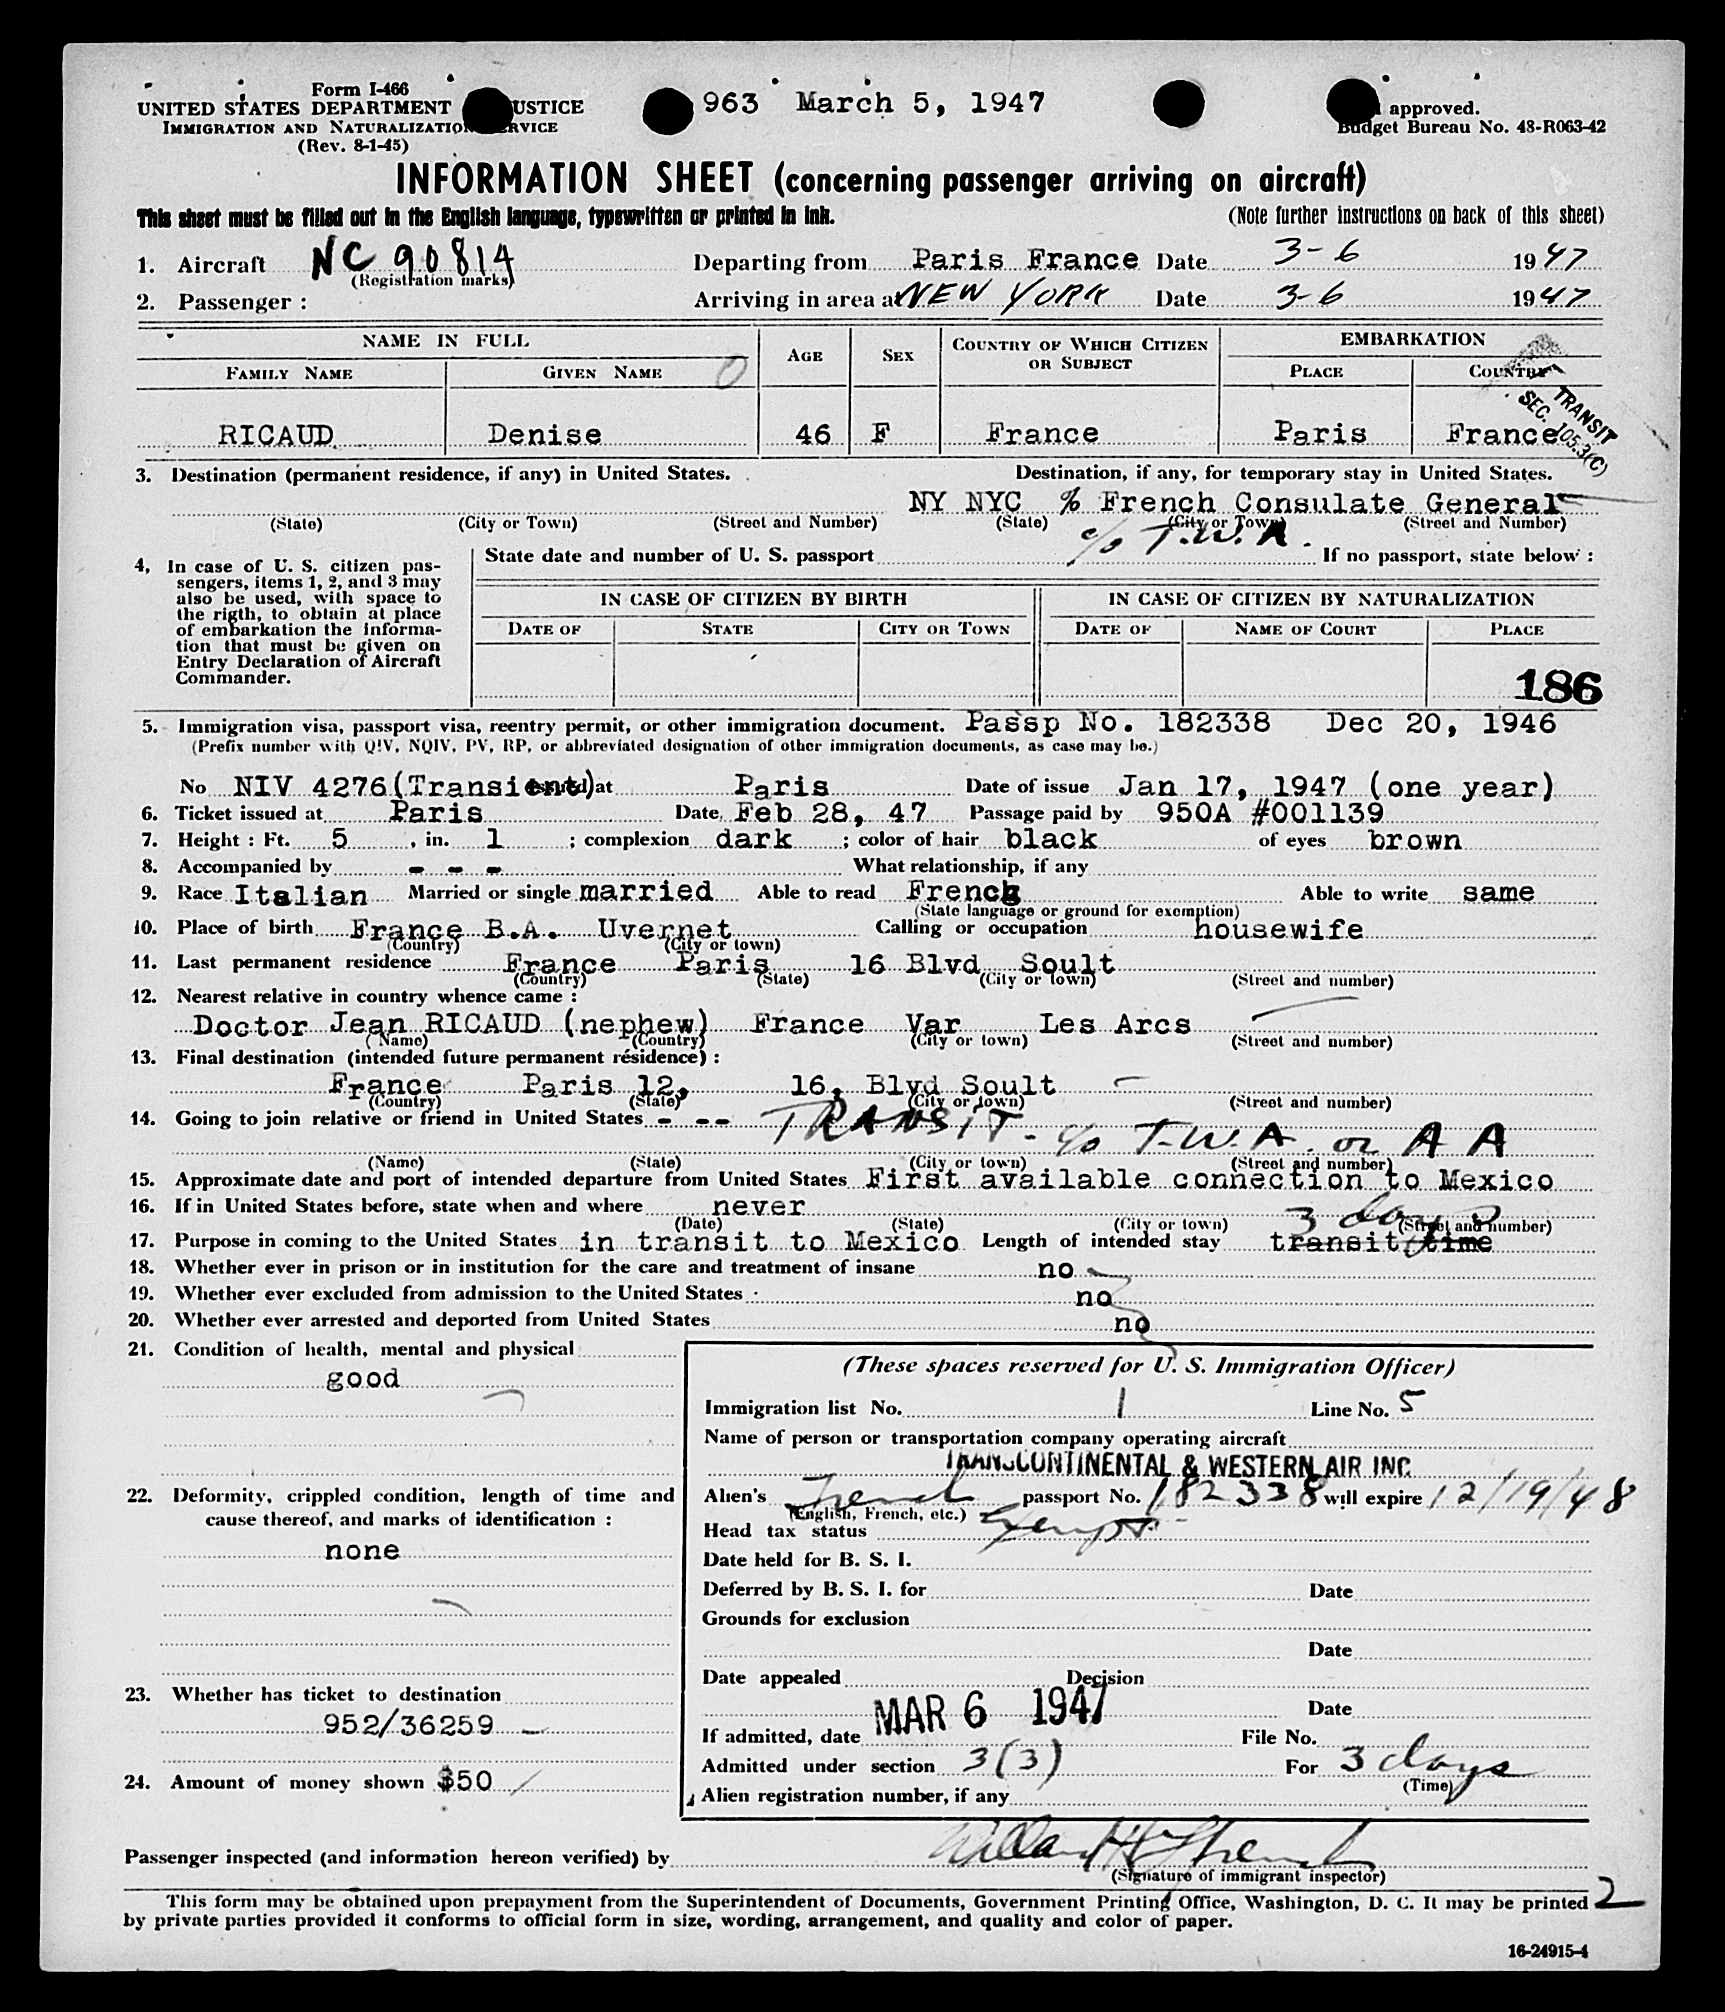 Form I-466
UNITED STATES DEPARTMENT USTICE
963 March 5, 1947
approved.
IMMIGRATION AND NATURALIZATION RVICE
Budget Bureau No. 43-R063-42
(Rev. 8-1-45)
INFORMATION SHEET (concerning passenger arriving on aircraft)
This sheet must be filled out in the English language, typewritten or printed in ink. (Note further instructions on back of this sheet)
1. Aircraft NC 90814 Departing from Paris France Date 3-6 1947
(Registration marks)
2. Passenger : Arriving in area at NEW YORK Date 3-6 1947
NAME IN FULL AGE SEX COUNTRY OF WHICH CITIZEN OR SUBJECT EMBARKATION
FAMILY NAME GIVEN NAME PLACE COUNTRY
TRANSIT
SEC. 105.3(C)
RICAUD Denise 46 F France Paris France
3. Destination (permanent residence, if any) in United States. Destination, if any, for temporary stay in United States.
NY NYC % French Consulate General
(State) (City or Town) (Street and Number) (State) (City or Town) (Street and Number)
c/o T.W.A.
4. In case of U. S. citizen pas-
sengers, items 1, 2, and 3 may
also be used, with space to
the rigth, to obtain at place
of embarkation the informa-
tion that must be given on
Entry Declaration of Aircraft
Commander.
State date and number of U. S. passport If no passport, state below :
IN CASE OF CITIZEN BY BIRTH IN CASE OF CITIZEN BY NATURALIZATION
DATE OF STATE CITY OR TOWN DATE OF NAME OF COURT PLACE
186
5. Immigration visa, passport visa, reentry permit, or other immigration document. Passp No. 182338 Dec 20, 1946
(Prefix number with QIV, NQIV, PV, RP, or abbreviated designation of other immigration documents, as case may be.)
No NIV 4276(Transient) Issued at Paris Date of issue Jan 17, 1947 (one year)
6. Ticket issued at Paris Date Feb 28, 47 Passage paid by 950A #001139
7. Height : Ft. 5 , in. 1 ; complexion dark ; color of hair black of eyes brown
8. Accompanied by - - - What relationship, if any
9. Race Italian Married or single married Able to read French Able to write same
(State language or ground for exemption)
10. Place of birth France B.A. Uvernet Calling or occupation housewife
(Country) (City or town)
11. Last permanent residence France Paris 16 Blvd Soult
(Country) (State) (City or town) (Street and number)
12. Nearest relative in country whence came :
Doctor Jean RICAUD (nephew) France Var Les Arcs
(Name) (Country) (City or town) (Street and number)
13. Final destination (intended future permanent résidence) :
France Paris 12, 16, Blvd Soult
(Country) (State) (City or town) (Street and number)
14. Going to join relative or friend in United States - - - TRANSIT - c/o T.W.A. or A A
(Name) (State) (City or town) (Street and number)
15. Approximate date and port of intended departure from United States First available connection to Mexico
16. If in United States before, state when and where never
(Date) (State) (City or town) (Street and number)
3 days
17. Purpose in coming to the United States in transit to Mexico Length of intended stay transit time
18. Whether ever in prison or in institution for the care and treatment of insane no
19. Whether ever excluded from admission to the United States no
20. Whether ever arrested and deported from United States no
21. Condition of health, mental and physical
good
22. Deformity, crippled condition, length of time and
cause thereof, and marks of identification :
none
23. Whether has ticket to destination
952/36259
24. Amount of money shown $50
(These spaces reserved for U. S. Immigration Officer)
Immigration list No. 1 Line No. 5
Name of person or transportation company operating aircraft
TRANSCONTINENTAL & WESTERN AIR INC
Alien's French passport No. 182338 will expire 12/19/48
(English, French, etc.)
Head tax status Exempt
Date held for B. S. I.
Deferred by B. S. I. for Date
Grounds for exclusion
Date
Date appealed Decision
Date
If admitted, date MAR 6 1947 File No.
Admitted under section 3(3) For 3 days
(Time)
Alien registration number, if any
Passenger inspected (and information hereon verified) by
(Signature of immigrant inspector)
This form may be obtained upon prepayment from the Superintendent of Documents, Government Printing Office, Washington, D. C. It may be printed 2
by private parties provided it conforms to official form in size, wording, arrangement, and quality and color of paper.
16-24915-4